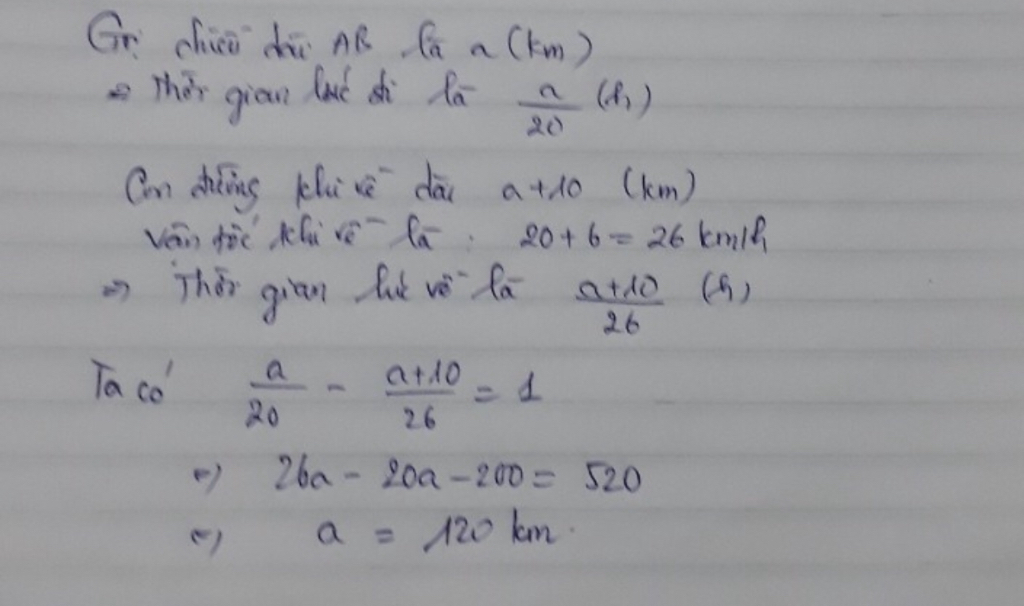 Gọi chiều dài AB là a (km)
=> Thời gian lúc đi là a/20 (h)
Con đường khi về dài a+10 (km)
Vận tốc khi về là : 20+6 = 26 km/h
=> Thời gian lúc về là (a+10)/26 (h)
Ta có a/20 - (a+10)/26 = 1
<=> 26a - 20a - 200 = 520
<=> a = 120 km.